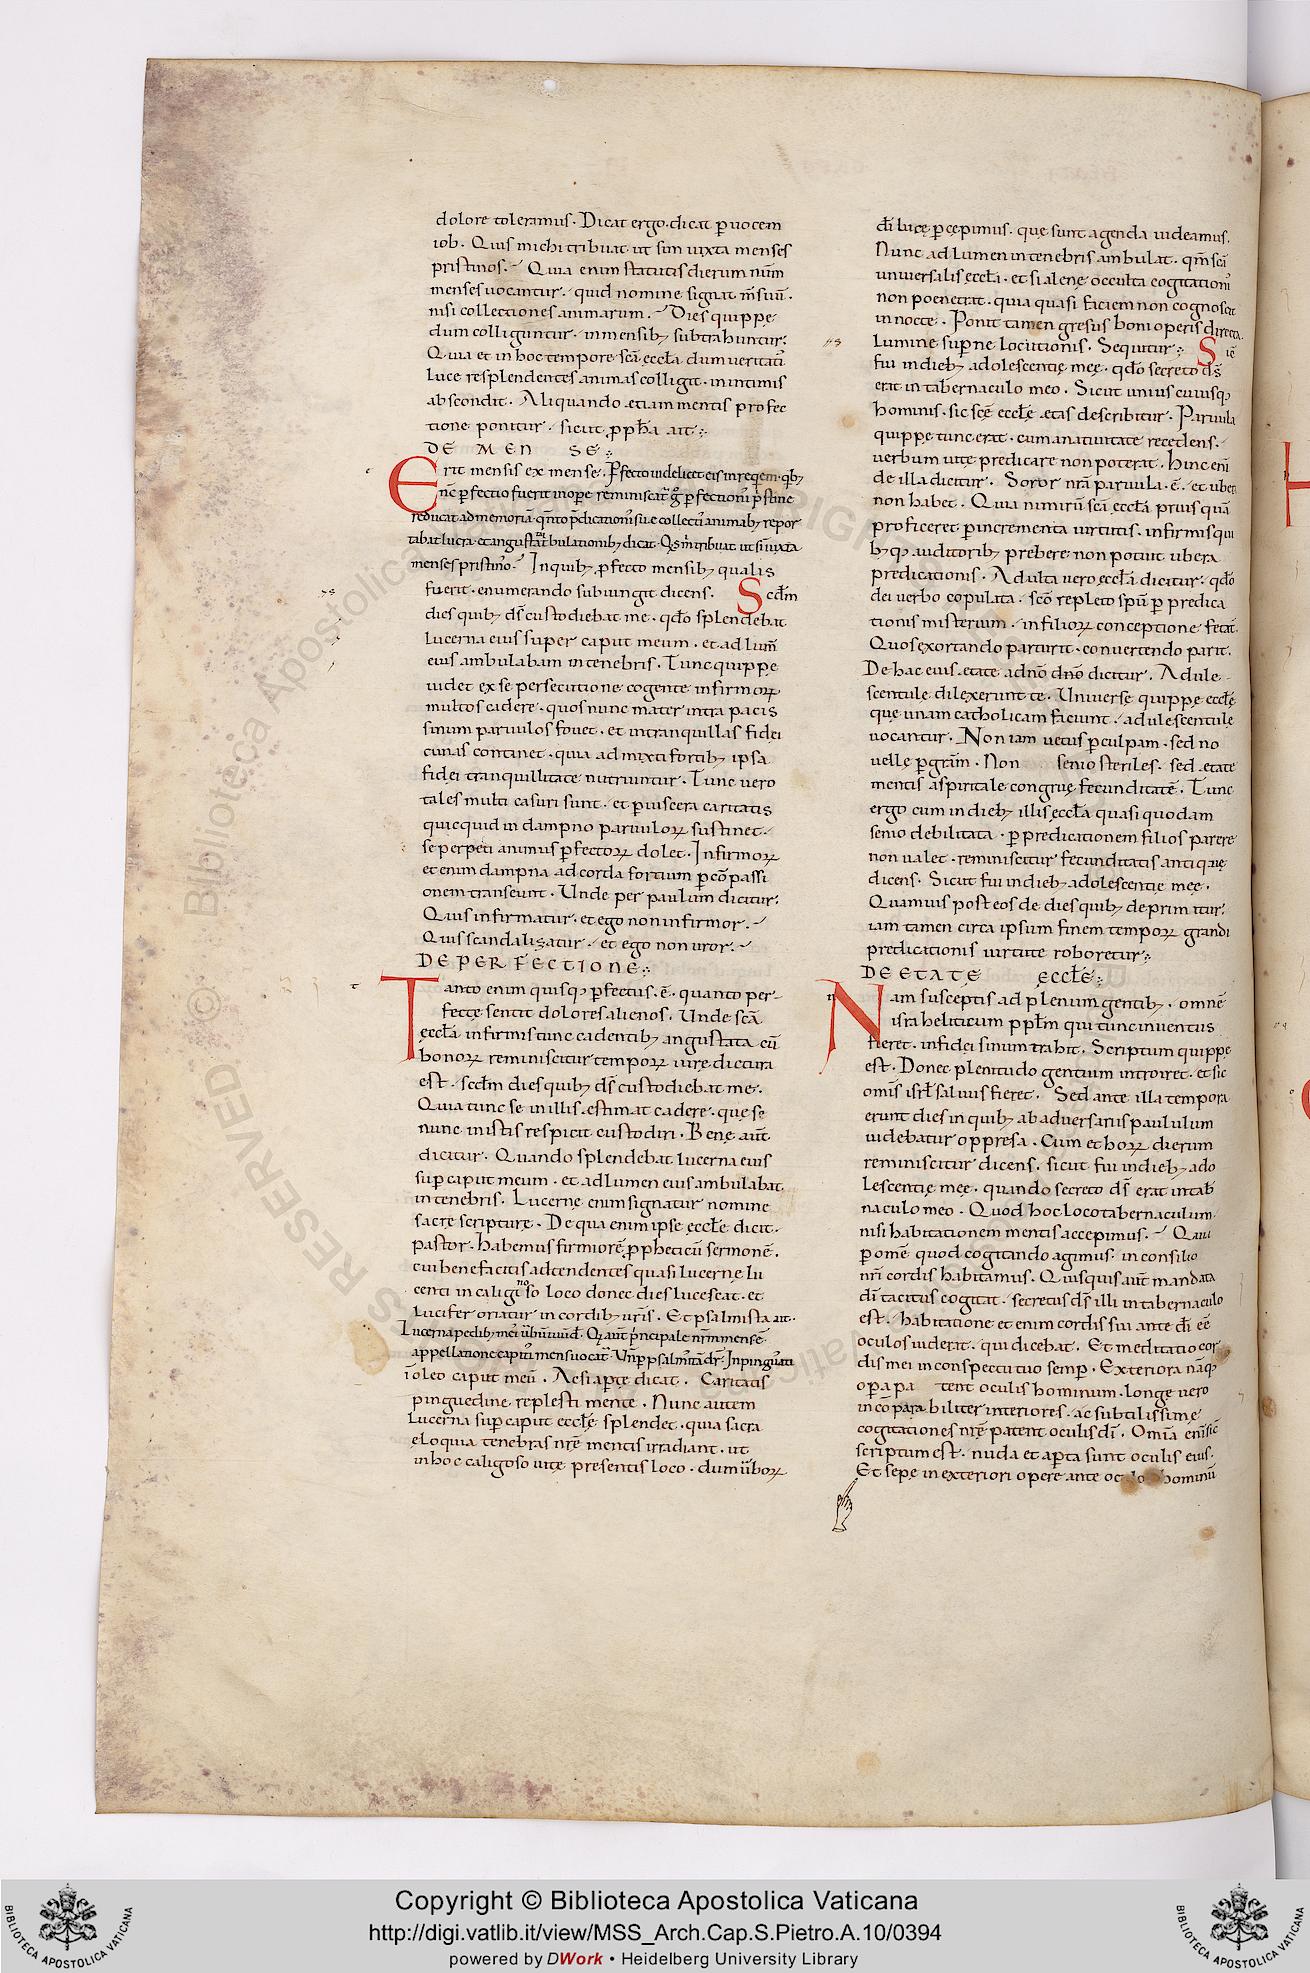 dolore toleramus. Dicat ergo. dicat ꝑ uocem
iob. Quis michi tribuat ut sim iuxta menses
pristinos. Quia enim statutis dierum num̄
menses uocantur. quid nomine signat m̄suū.
nisi collectiones animarum. Dies quippe
dum colliguntur. in mensibꝫ subtrahuntur.
Quia et in hoc tempore scā ecclā dum ueritatī
luce resplendentes animas colligit. in intimis
abscondit. Aliquando etiam mentis profec
tione ponitur. sicut ꝓph̄a ait.
DE MENSE.
Erit mensis ex mense. Ꝑfecto uidelicet eis in req̄em. qͥbꝫ
ꝑfectio fuerit in oꝑe reminiscat̄ gͦ ꝑfectionī pͥstine
reducat ad memoriā qͣnto p̄dicationī sue collectū animabꝫ repor
tabat lucra. et angustat̄ tͥbulationibꝫ dicat. Qͥs m̄ tribuat ut sī iuxta
menses pristino. In quibꝫ ꝓfecto mensibꝫ qualis
fuerit. enumerando subiungit dicens. Scdm̄
dies quibꝫ dš custodiebat me. qdo splendebat
lucerna eius super caput meum. et ad lum̄
eius ambulabam in tenebris. Tunc quippe
uidet ex se persecutione cogente infirmoꝝ
multos cadere. quos nunc mater intra pacis
sinum paruulos fouet. et in tranquillas fidei
cunas continet. quia admixti fortibꝫ ipsa
fidei tranquillitate nutriuntur. Tunc uero
tales multi casuri sunt. et ꝑ uiscera caritatis
quicquid in dampno paruuloꝝ sustinet.
se perpeti animus ꝑfectoꝝ dolet. Infirmoꝝ
etenim dampna ad corda fortium ꝑ cōpassi
onem transeunt. Unde per paulum dicitur.
Quis infirmatur. et ego non infirmor.
Quis scandalizatur. et ego non uror.
DE PERFECTIONE.
Tanto enim quisqꝫ ꝑfectus. ē. quanto per
fecte sentit dolores alienos. Unde scā
ecclā infirmis tunc cadentibꝫ angustata cū
bonoꝝ reminiscitur tempoꝝ iure dictura
est. scdm̄ dies quibꝫ dš custodiebat me.
Quia tunc se in illis estimat cadere. que se
nunc in istis respicit custodiri. Bene aūt
dicitur. Quando splendebat lucerna eius
suꝑ caput meum. et ad lumen eius ambulabat
in tenebris. Lucerne enim signatur nomine
sacre scripture. De qua enim ipse eccłe dicit.
pastor. habemus firmiorē ꝓpheticū sermonē.
cui bene facitis adtendentes quasi lucerne lu
centi in caliginoso loco donec dies lucescat. et
lucifer oriatur in cordibꝫ ur̄is. Et psalmista ait.
Lucerna pedibꝫ meī uͥbū tuū dn̄e. Qͣ aūt pͥncipale nr̄m mense
appellatione capitī mens uocat̄. Un̄ ꝑ psalmͥtā dr̄. Inpinguasti
in oleo caput meū. Ac si aꝑte dicat. Caritatis
pinguedine replesti mente. Nunc autem
lucerna suꝑ caput eccłe splendet. quia sacra
eloquia tenebras nr̄e mentis irradiant. ut
in hoc caligoso uite presentis loco. dum uͥboꝝ
dī luce ꝑcepimus. que sunt agenda uideamus.
Nunc ad lumen in tenebris ambulat. qm̄ scā
uniuersalis ecclā. et si alene occulta cogitationī
non poenetrat. quia quasi faciem non cognoscit
in nocte. Ponit tamen gresus boni operis directa
lumine suꝑne locutionis. Sequitur. Sic̄
fui in diebꝫ adolescentie mee. qdo secreto dš
erat in tabernaculo meo. Sicut unius cuiusqꝫ
hominis. sic sce eccłe etas describitur. Paruula
quippe tunc erat. cum a natiuitate recedens.
uerbum uite predicare non poterat. Hinc enī
de illa dicitur. Soror nr̄a paruula. ē. et ubera
non habet. Quia nimirū scā ecclā prius quā
proficeret ꝑ incrementa uirtutis. infirmis qui
bꝫqꝫ auditoribꝫ prebere non potuit ubera
predicationis. Adulta uero ecclā dicitur. qdo
dei uerbo copulata. scō repleto sp̄u ꝑ predica
tionis misterium. in filioꝝ conceptione fetat̄.
Quos exortando parturit. conuertendo parit.
De hac eius etate adn̄o dn̄o dicitur. Adule
scentule dilexerunt te. Uniuerse quippe eccłe
que unam catholicam faciunt. adulescentule
uocantur. Non iam uetus ꝑ culpam. sed no
uelle ꝑ grām. Non senio steriles. sed etate
mentis a spiritale congrue fecunditatē. Tunc
ergo cum in diebꝫ illis ecclā quasi quodam
senio debilitata. ꝑ predicationem filios parere
non ualet. reminiscitur fecunditatis antique
dicens. Sicut fui in diebꝫ adolescentie mee.
Quamuis post eos de dies quibꝫ deprimitur.
iam tamen circa ipsum finem tempoꝝ grandi
predicationis uirtute roboretur.
DE ETATE ECCŁE.
Nam susceptis ad plenum gentibꝫ. omnē
israheliticum ppłm qui tunc inuentus
fieret. in fidei sinum trahit. Scriptum quippe
est. Donec plenitudo gentium introiret. et sic
omīs isrł saluus fieret. Sed ante illa tempora
erunt dies in quibꝫ ab aduersariis paululum
uidebatur oppresa. Cum et hoꝝ dierum
reminiscitur dicens. sicut fui in diebꝫ ado
lescentie mee. quando secreto dš erat in tab̄
naculo meo. Quod hoc loco tabernaculum
nisi habitationem mentis accepimus. Quia
ꝑ omē quod cogitando agimus. in consilio
nr̄i cordis habitamus. Quisquis aūt mandata
dī tacitus cogitat. secretus dš illi in tabernaculo
est. habitatione etenim cordis sui ante dī eē
oculos uiderat. qui dicebat. Et meditatio cor
dis mei in conspectu tuo semꝑ. Exteriora nāqꝫ
oꝑa pa tent oculis hominum. longe uero
in cōparabiliter interiores. ac subtilissime
cogitationes nr̄e patent oculis dī. Omīa enī sic̄
scriptum est. nuda et aꝑta sunt oculis eius.
Et sepe in exteriori opere ante oculos hominū
Copyright © Biblioteca Apostolica Vaticana
http://digi.vatlib.it/view/MSS_Arch.Cap.S.Pietro.A.10/0394
powered by DWork • Heidelberg University Library